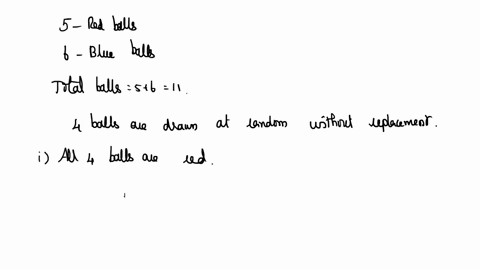 5 - Red balls
6 - Blue balls
Total balls = 5+6 = 11.
4 balls are drawn at random without replacement.
i) All 4 balls are red.